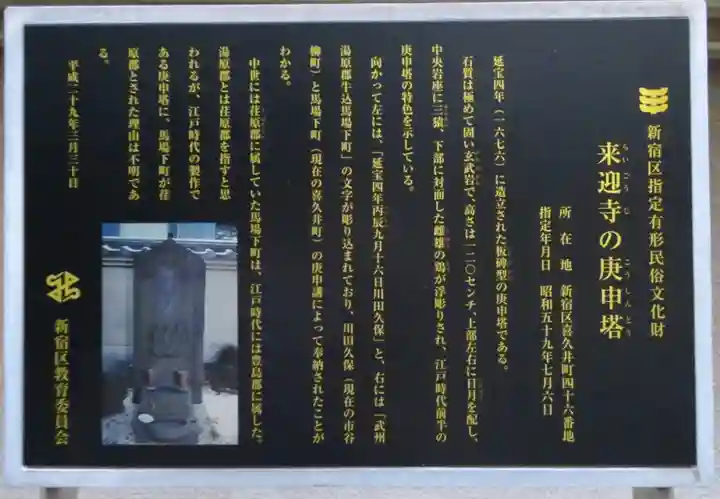 新宿区指定有形民俗文化財
来迎寺の庚申塔
らいごうじ こうしんとう
所在地 新宿区喜久井町四十六番地
指定年月日 昭和五十九年七月六日
延宝四年（一六七六）に造立された板碑型の庚申塔である。
石質は極めて固い玄武岩で、高さは一二〇センチ、上部左右に日月を配し、
中央岩座に三猿、下部に対面した雌雄の鶏が浮彫りされ、江戸時代前半の
庚申塔の特色を示している。
向かって左には、「延宝四年丙辰九月十六日川田久保」と、右には「武州
湯原郡牛込馬場下町」の文字が彫り込まれており、川田久保（現在の市谷
柳町）と馬場下町（現在の喜久井町）の庚申講によって奉納されたことが
わかる。
中世には荏原郡に属していた馬場下町は、江戸時代には豊島郡に属した。
湯原郡とは荏原郡を指すと思
われるが、江戸時代の製作で
ある庚申塔に、馬場下町が荏
原郡とされた理由は不明であ
る。
平成二十九年三月三十日
新宿区教育委員会